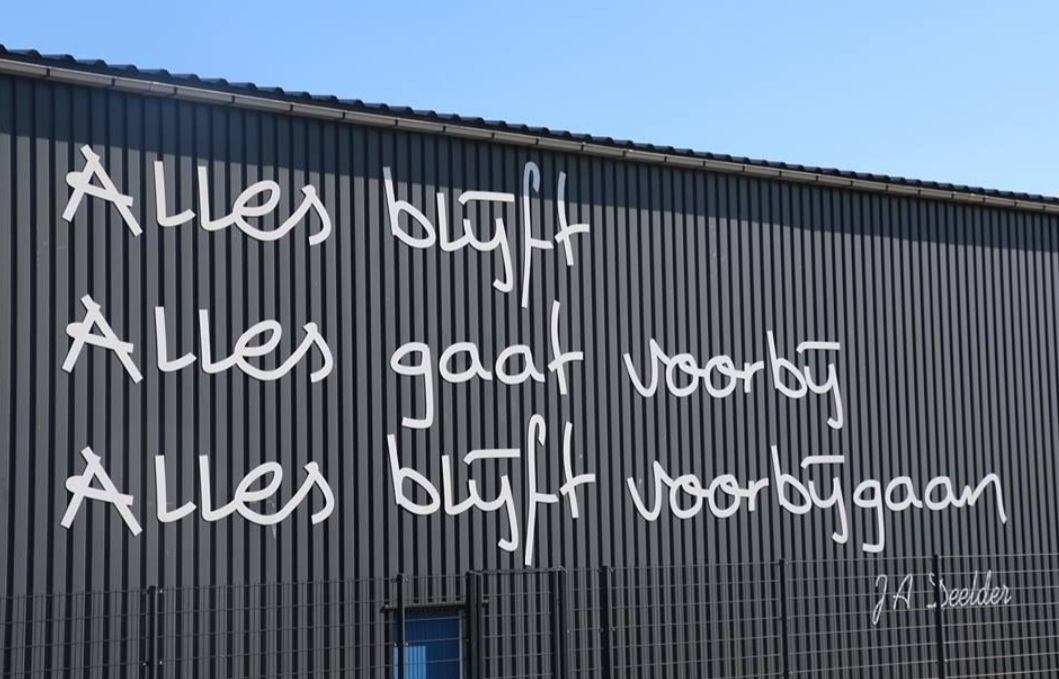 Alles blijft
Alles gaat voorbij
Alles blijft voorbijgaan
J A Deelder